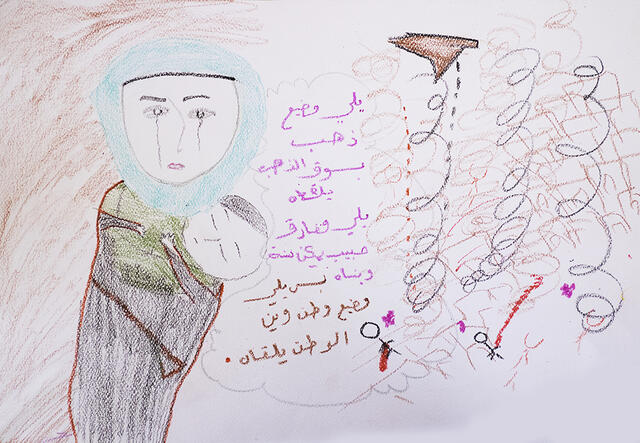 يلي وضيع
ذهب
بسوق الذهب
يلقاه
يلي مفارق
حبيب يمكن سنة
وينساه بس يلي
وضيع وطن وين
الوطن يلقاه.